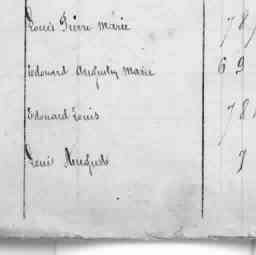 Louis Pierre Marie 78
Edouard Augustin Marie 69
Edouard Louis 78
Louis August 7